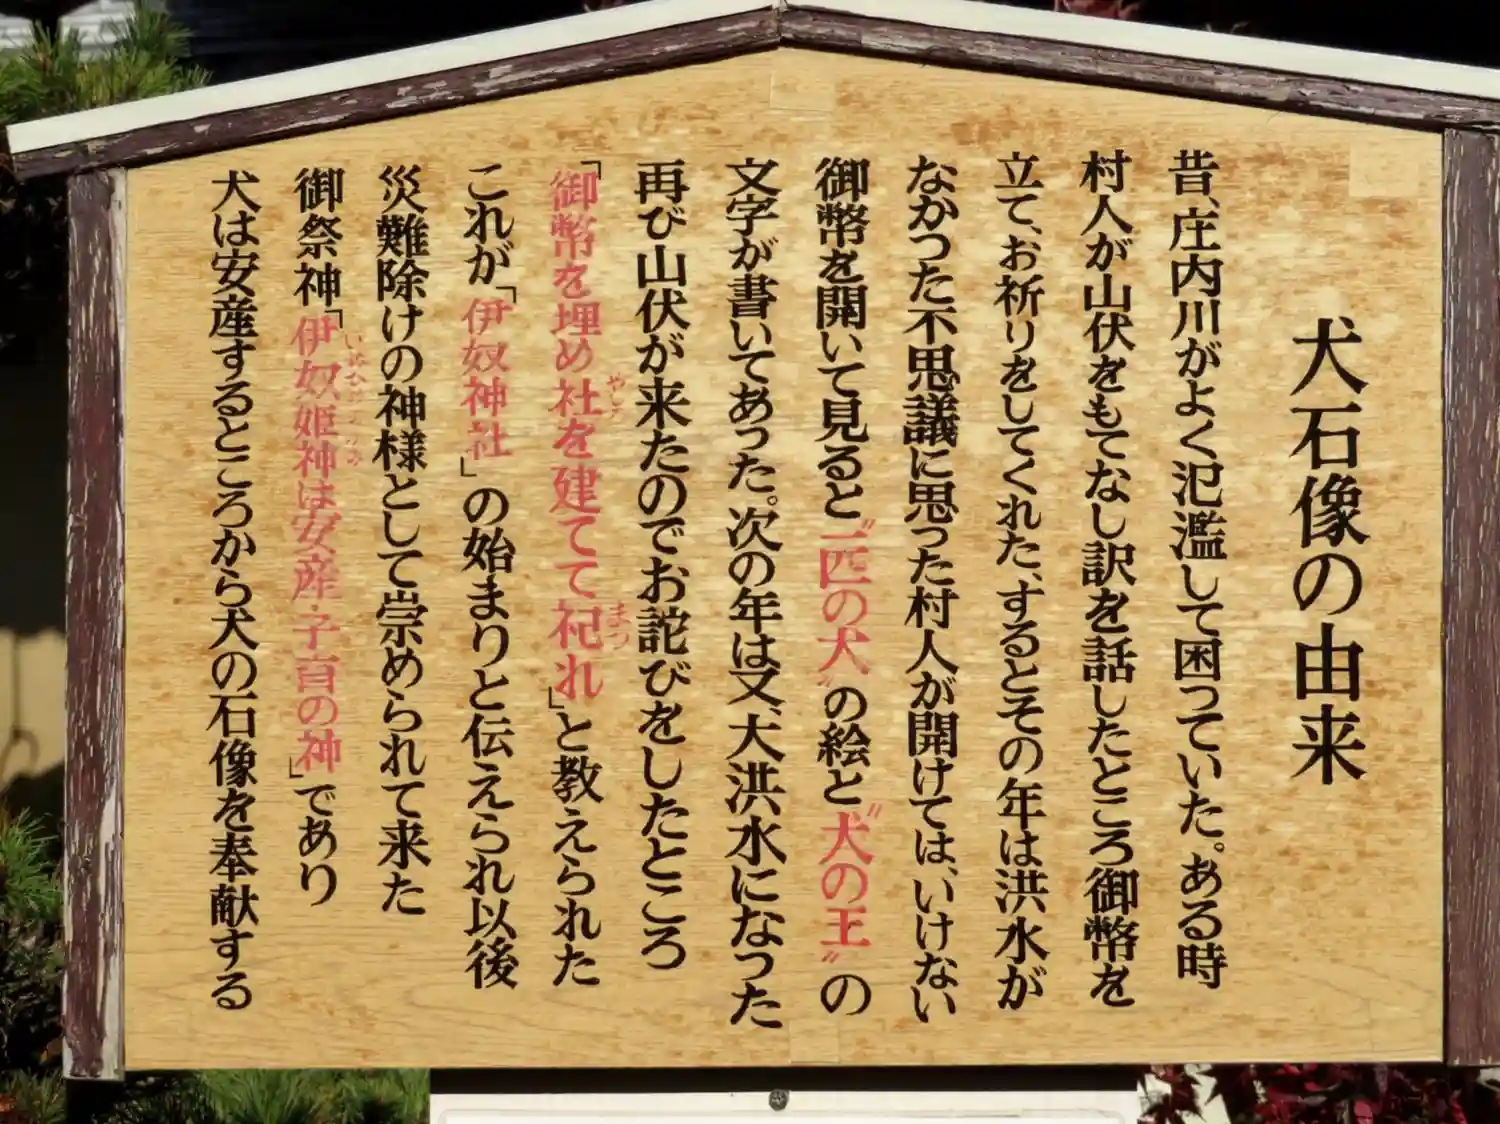 犬石像の由来
昔、庄内川がよく氾濫して困っていた。ある時
村人が山伏をもてなし訳を話したところ御幣を
立て、お祈りをしてくれた、するとその年は洪水が
なかった不思議に思った村人が開けては、いけない
御幣を開いて見ると〝一匹の犬〟の絵と〝犬の王〟の
文字が書いてあった。次の年は又、大洪水になった
再び山伏が来たのでお詫びをしたところ
「御幣を埋め社を建てて祀れ」と教えられた
これが「伊奴神社」の始まりと伝えられ以後
災難除けの神様として崇められて来た
御祭神「伊奴姫神は安産・子育の神」であり
犬は安産するところから犬の石像を奉献する